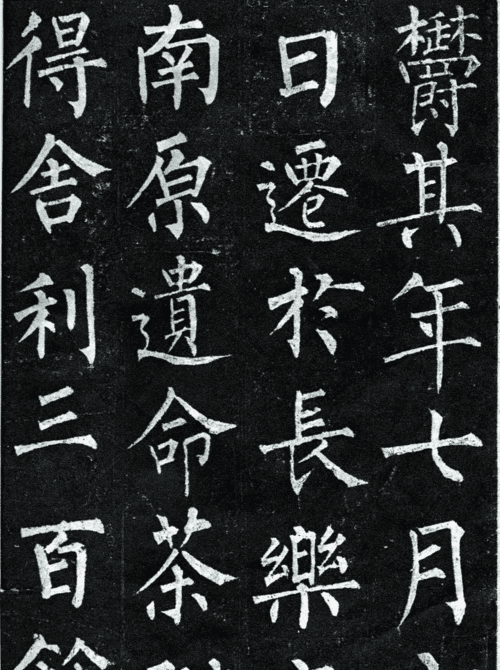 欝其年七月
日遷於長樂
南原遺命茶
得舍利三百餘